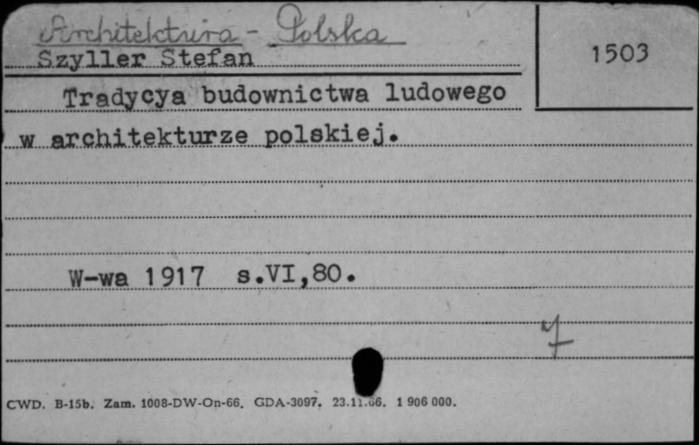 Architektura - Polska
Szyller Stefan
1503
Tradycya budownictwa ludowego
w architekturze polskiej.
W-wa 1917 s.VI,80.
7
CWD. B-15b. Zam. 1008-DW-On-66. GDA-3097. 23.11.66. 1 906 000.